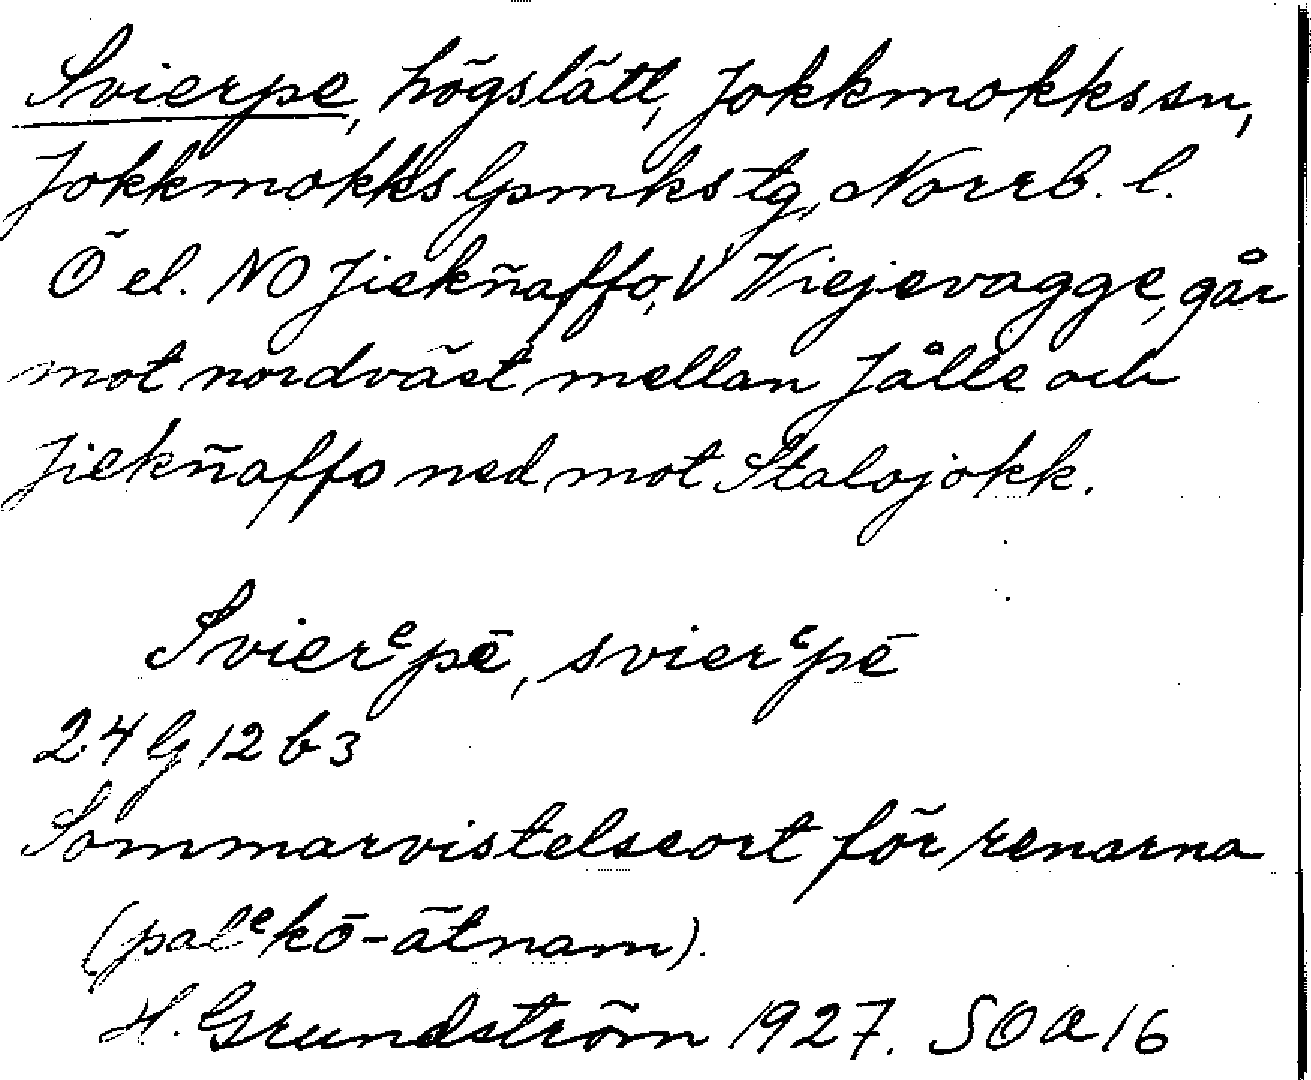 Svierpe, högslätt, Jokkmokks sn,
Jokkmokks lpmks tg, Norrb. l.
Ö el. NO Jiekñaffo, V Viejevagge, går
mot nordväst mellan Jålle och
Jiekñaffo ned mot Stalojokk.
Svierᵉpē, svierᵉpē
24 G 12 b 3
Sommarvistelseort för renarna
(palᵉkō-ätnam).
H. Grundström 1927. SOA 16